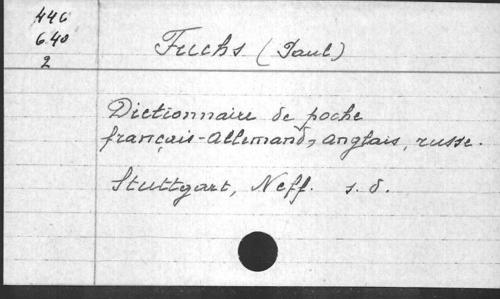 446
640
2
Fuchs (Paul)
Dictionnaire de poche
français-Allemand, anglais, russe.
Stuttgart, Neff. s. d.